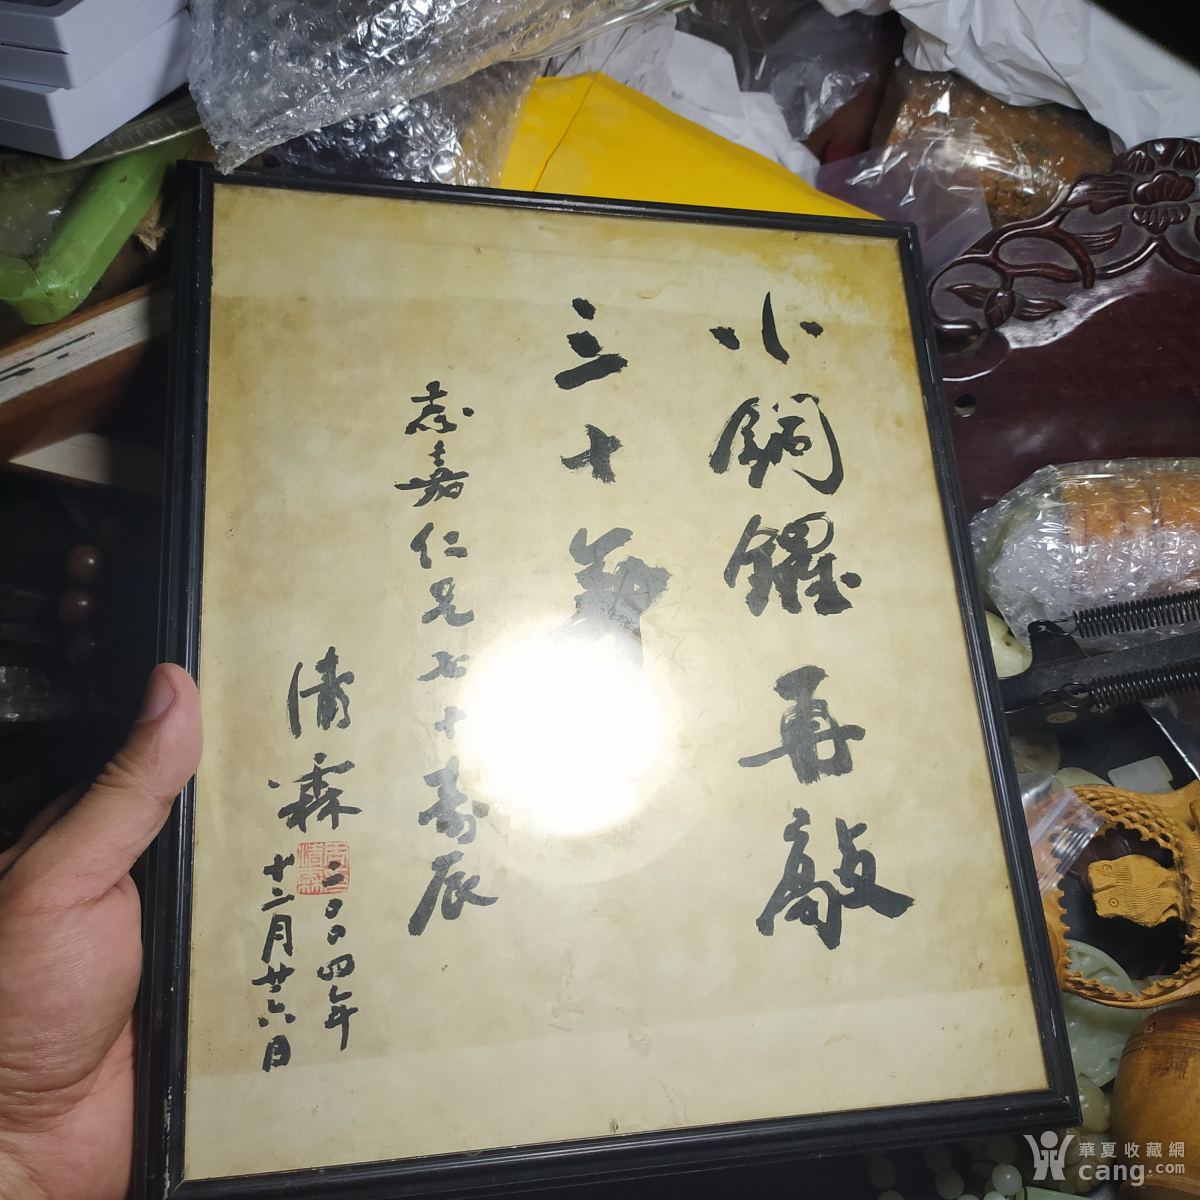 小銅鑼再敲
三十年
志嘉仁兄七十寿辰
清霖
二〇〇四年
十二月廿六日
華夏收藏網
cang.com